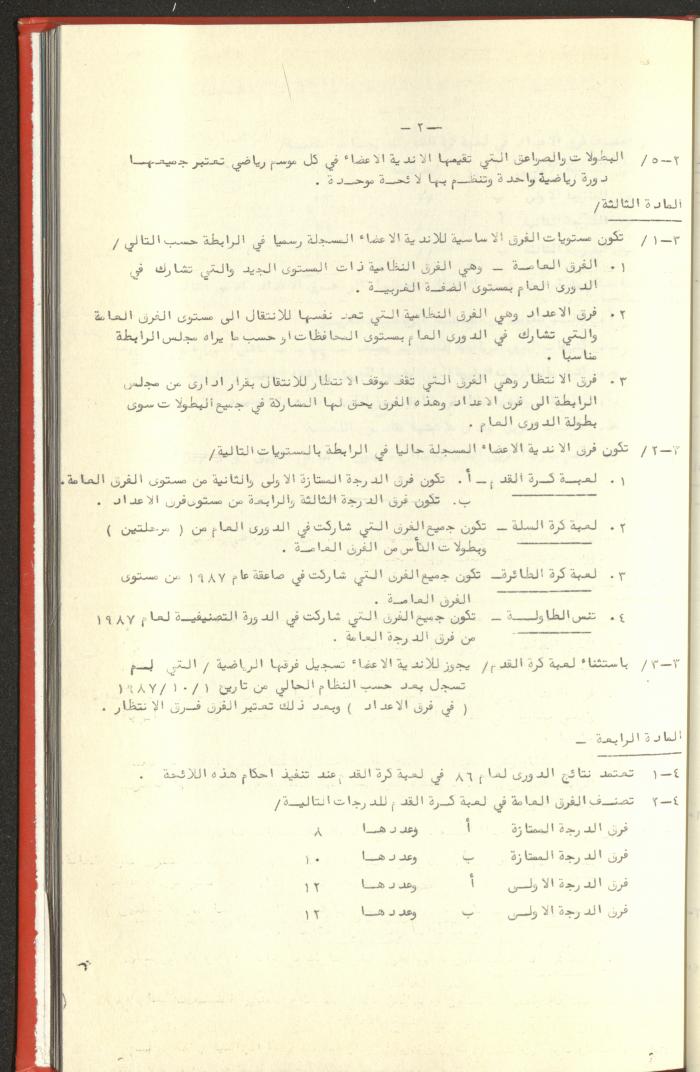 — ٢ —
٢-٥ / البطولات والصواعق التي تقيمها الاندية الاعضاء في كل موسم رياضي تعتبر جميعهـا
دورة رياضية واحدة وتنظـم بها لائحـة موحـدة .
المادة الثالثة/
٣-١ / تكون مستويات الفرق الاساسية للاندية الاعضاء المسجلة رسميا في الرابطة حسب التالي /
١. الفرق العامـة – وهي الفرق النظامية ذات المستوى الجيد والتي تشارك في
الدورى العام بمستوى الضفـة الغربيـة .
٢. فرق الاعداد وهي الفرق النظامية التي تعد نفسها للانتقال الى مستوى الفرق العامة
والتي تشارك في الدورى العام بمستوى المحافظات او حسب ما يراه مجلس الرابطة
مناسبا .
٣. فرق الانتظار وهي الفرق التي تقف موقف الانتظار للانتقال بقرار ادارى من مجلس
الرابطة الى فرق الاعداد وهذه الفرق يحق لها المشاركة في جميع البطولات سوى
بطولة الدورى العام .
٣-٢/ تكون فرق الاندية الاعضاء المسجلة حاليا في الرابطة بالمستويات التالية/
١. لعبـة كـرة القدم – أ. تكون فرق الدرجة الممتازة الاولى والثانية من مستوى الفرق العامة.
ب. تكون فرق الدرجة الثالثة والرابعة من مستوى فرق الاعداد .
٢. لعبة كرة السلة – تكون جميع الفرق التي شاركت في الدورى العام من ( مرحلتين )
وبطولات الكأس من الفرق العامـة .
٣. لعبة كرة الطائرة– تكون جميع الفرق التي شاركت في صاعقة عام ١٩٨٧ من مستوى
الفرق العامـة .
٤. تنس الطاولـــة – تكون جميع الفرق التي شاركت في الدورة التصنيفيـة لعام ١٩٨٧
من فرق الدرجة العامة .
٣-٣/ باستثناء لعبة كرة القدم/ يجوز للاندية الاعضاء تسجيل فرقها الرياضية / التي لـم
تسجل بعد حسب النظام الحالي من تاريخ ١٩٨٧/١٠/١
( في فرق الاعداد ) وبعد ذلك تعتبر الفرق فـرق الانتظار .
المادة الرابعة –
٤-١ تعتمد نتائج الدورى لعام ٨٦ في لعبة كرة القدم عند تنفيذ احكام هذه اللائحة .
٤-٢ تصنـف الفرق العامة في لعبة كـرة القدم للدرجات التاليـة/
فرق الدرجة الممتازة أ وعددهـا ٨
فرق الدرجة الممتازة ب وعددهـا ١٠
فرق الدرجة الاولـى أ وعددهـا ١٢
فرق الدرجة الاولـى ب وعددهـا ١٢